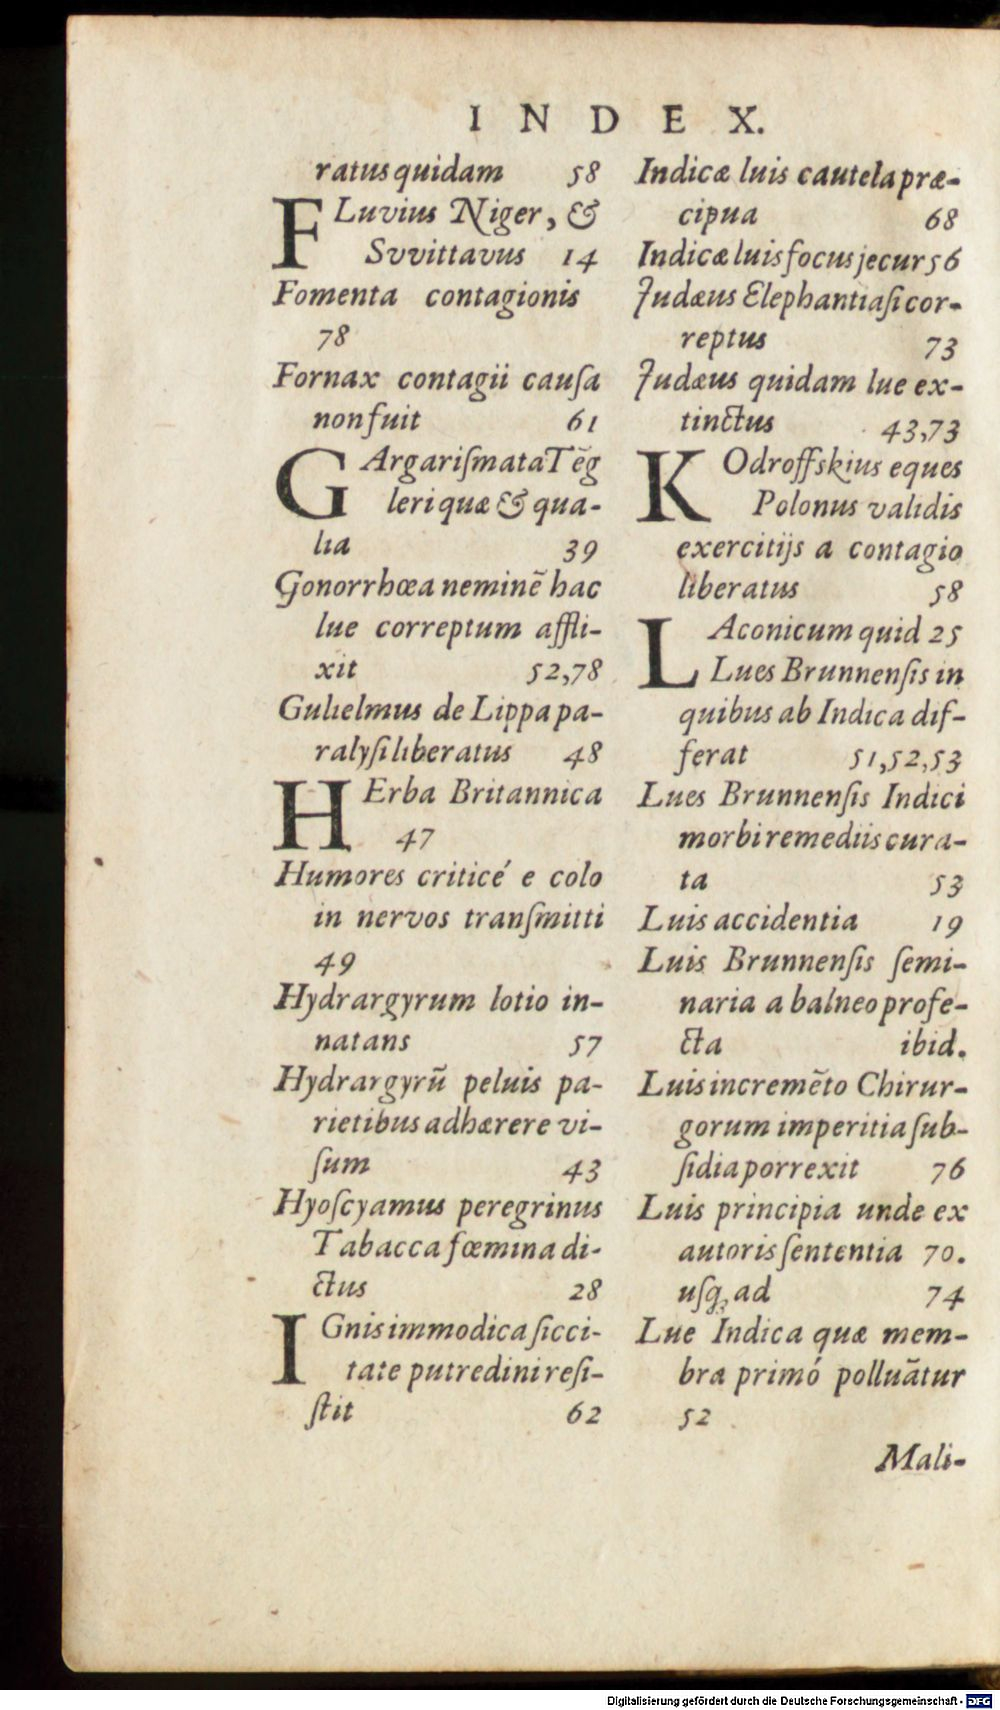 INDEX.
ratus quidam 58
FLuvius Niger, &
Svvittavus 14
Fomenta contagionis
78
Fornax contagii cauſa
non fuit 61
GArgariſmata Tēg
leri quæ & qua-
lia 39
Gonorrhœa neminē hac
lue correptum affli-
xit 52,78
Gulielmus de Lippa pa-
ralyſi liberatus 48
HErba Britannica
47
Humores criticé e colo
in nervos tranſmitti
49
Hydrargyrum lotio in-
natans 57
Hydrargyrū peluis pa-
rietibus adhærere vi-
ſum 43
Hyoſcyamus peregrinus
Tabacca fœmina di-
ctus 28
IGnis immodica ſicci-
tate putredini reſi-
ſtit 62
Indicæ luis cautela præ-
cipua 68
Indicæ luis focus jecur 56
Judæus Elephantiaſi cor-
reptus 73
Judæus quidam lue ex-
tinctus 43,73
KOdroffskius eques
Polonus validis
exercitijs a contagio
liberatus 58
LAconicum quid 25
Lues Brunnenſis in
quibus ab Indica dif-
ferat 51,52,53
Lues Brunnenſis Indici
morbi remediis cura-
ta 53
Luis accidentia 19
Luis Brunnenſis ſemi-
naria a balneo profe-
cta ibid.
Luis incremēto Chirur-
gorum imperitia ſub-
ſidia porrexit 76
Luis principia unde ex
autoris ſententia 70.
uſq; ad 74
Lue Indica quæ mem-
bra primó polluātur
52
Mali-
Digitalisierung gefördert durch die Deutsche Forschungsgemeinschaft - DFG